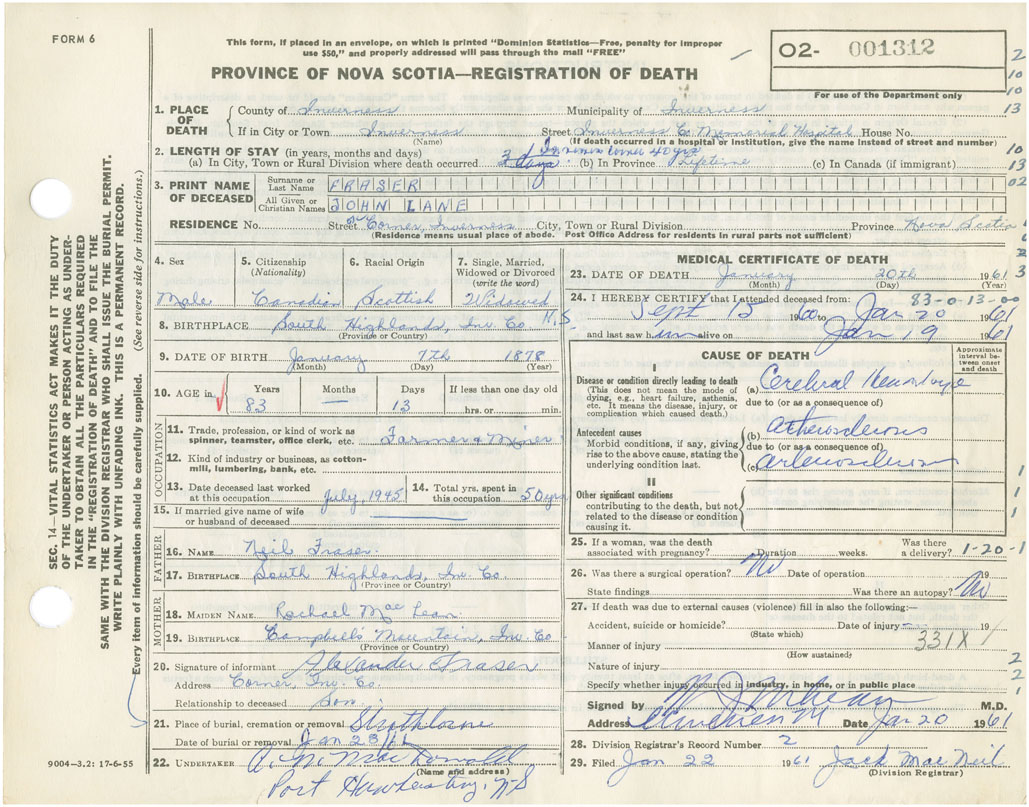 FORM 6
This form, if placed in an envelope, on which is printed "Dominion Statistics—Free, penalty for improper
use $50," and properly addressed will pass through the mail "FREE"
PROVINCE OF NOVA SCOTIA—REGISTRATION OF DEATH
02- 001312
For use of the Department only
2
10
10
13
1. PLACE OF DEATH
County of Inverness Municipality of Inverness
If in City or Town Inverness Street Inverness Co. Memorial Hospital House No.
(Name) (If death occurred in a hospital or institution, give the name instead of street and number)
2. LENGTH OF STAY (in years, months and days)
(a) In City, Town or Rural Division where death occurred 3 days (b) In Province Lifetime (c) In Canada (if immigrant)
10
13
02
3. PRINT NAME OF DECEASED
Surname or Last Name FRASER
All Given or Christian Names JOHN LANE
RESIDENCE No. Street Corner, Inverness City, Town or Rural Division Province Nova Scotia
(Residence means usual place of abode. Post Office Address for residents in rural parts not sufficient)
4. Sex
Male
5. Citizenship
(Nationality)
Canadian
6. Racial Origin
Scottish
7. Single, Married,
Widowed or Divorced
(write the word)
Widowed
8. BIRTHPLACE South Highlands, Inv. Co. N.S.
(Province or Country)
9. DATE OF BIRTH January 7th 1878
(Month) (Day) (Year)
10. AGE in Years Months Days If less than one day old
83 — 13 hrs. or min.
OCCUPATION
11. Trade, profession, or kind of work as
spinner, teamster, office clerk, etc. Farmer & Miner
12. Kind of industry or business, as cotton-
mill, lumbering, bank, etc.
13. Date deceased last worked
at this occupation July, 1945
14. Total yrs. spent in
this occupation 50 yrs
15. If married give name of wife
or husband of deceased
FATHER
16. NAME Neil Fraser.
17. BIRTHPLACE South Highlands, Inv. Co.
(Province or Country)
MOTHER
18. MAIDEN NAME Rachael Mac Lean
19. BIRTHPLACE Campbell's Mountain, Inv. Co
(Province or Country)
20. Signature of informant Alexander Fraser
Address Corner, Inv. Co.
Relationship to deceased Son.
21. Place of burial, cremation or removal Strathlorne
Date of burial or removal Jan 23/61
22. UNDERTAKER A. M. MacDonald
(Name and address)
Port Hawkesbury, N.S
MEDICAL CERTIFICATE OF DEATH
23. DATE OF DEATH January 20th 1961
(Month) (Day) (Year)
3
24. I HEREBY CERTIFY that I attended deceased from: 83-0-13-00
Sept 15 1960 to Jan 20 1961
and last saw him alive on Jan 19 1961
CAUSE OF DEATH
Approximate
interval be-
tween onset
and death
I
Disease or condition directly leading to death
(This does not mean the mode of
dying, e.g., heart failure, asthenia,
etc. It means the disease, injury, or
complication which caused death.)
(a) Cerebral Hemorrhage
due to (or as a consequence of)
Antecedent causes
Morbid conditions, if any, giving
rise to the above cause, stating the
underlying condition last.
(b) Atherosclerosis
due to (or as a consequence of)
(c) Arteriosclerosis
II
Other significant conditions
contributing to the death, but not
related to the disease or condition
causing it.
1
1
1
25. If a woman, was the death
associated with pregnancy? Duration weeks. Was there
a delivery? 1-20-1
26. Was there a surgical operation? No Date of operation 19
State findings Was there an autopsy? No
27. If death was due to external causes (violence) fill in also the following:—
Accident, suicide or homicide? Date of injury 19
(State which)
Manner of injury 331X
(How sustained)
Nature of injury
Specify whether injury occurred in industry, in home, or in public place
2
2
1
Signed by M.D.
Address Date Jan 20 1961
28. Division Registrar's Record Number 2
29. Filed Jan 22 1961 Jack Mac Neil
(Division Registrar)
SEC. 14—VITAL STATISTICS ACT MAKES IT THE DUTY
OF THE UNDERTAKER OR PERSON ACTING AS UNDER-
TAKER TO OBTAIN ALL THE PARTICULARS REQUIRED
IN THE "REGISTRATION OF DEATH" AND TO FILE THE
SAME WITH THE DIVISION REGISTRAR WHO SHALL ISSUE THE BURIAL PERMIT.
WRITE PLAINLY WITH UNFADING INK. THIS IS A PERMANENT RECORD.
Every item of information should be carefully supplied. (See reverse side for instructions.)
9004—3.2: 17-6-55